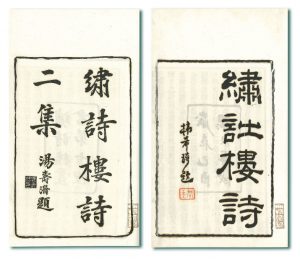 繡詩樓詩
繡詩樓詩
二集
湯壽潛題